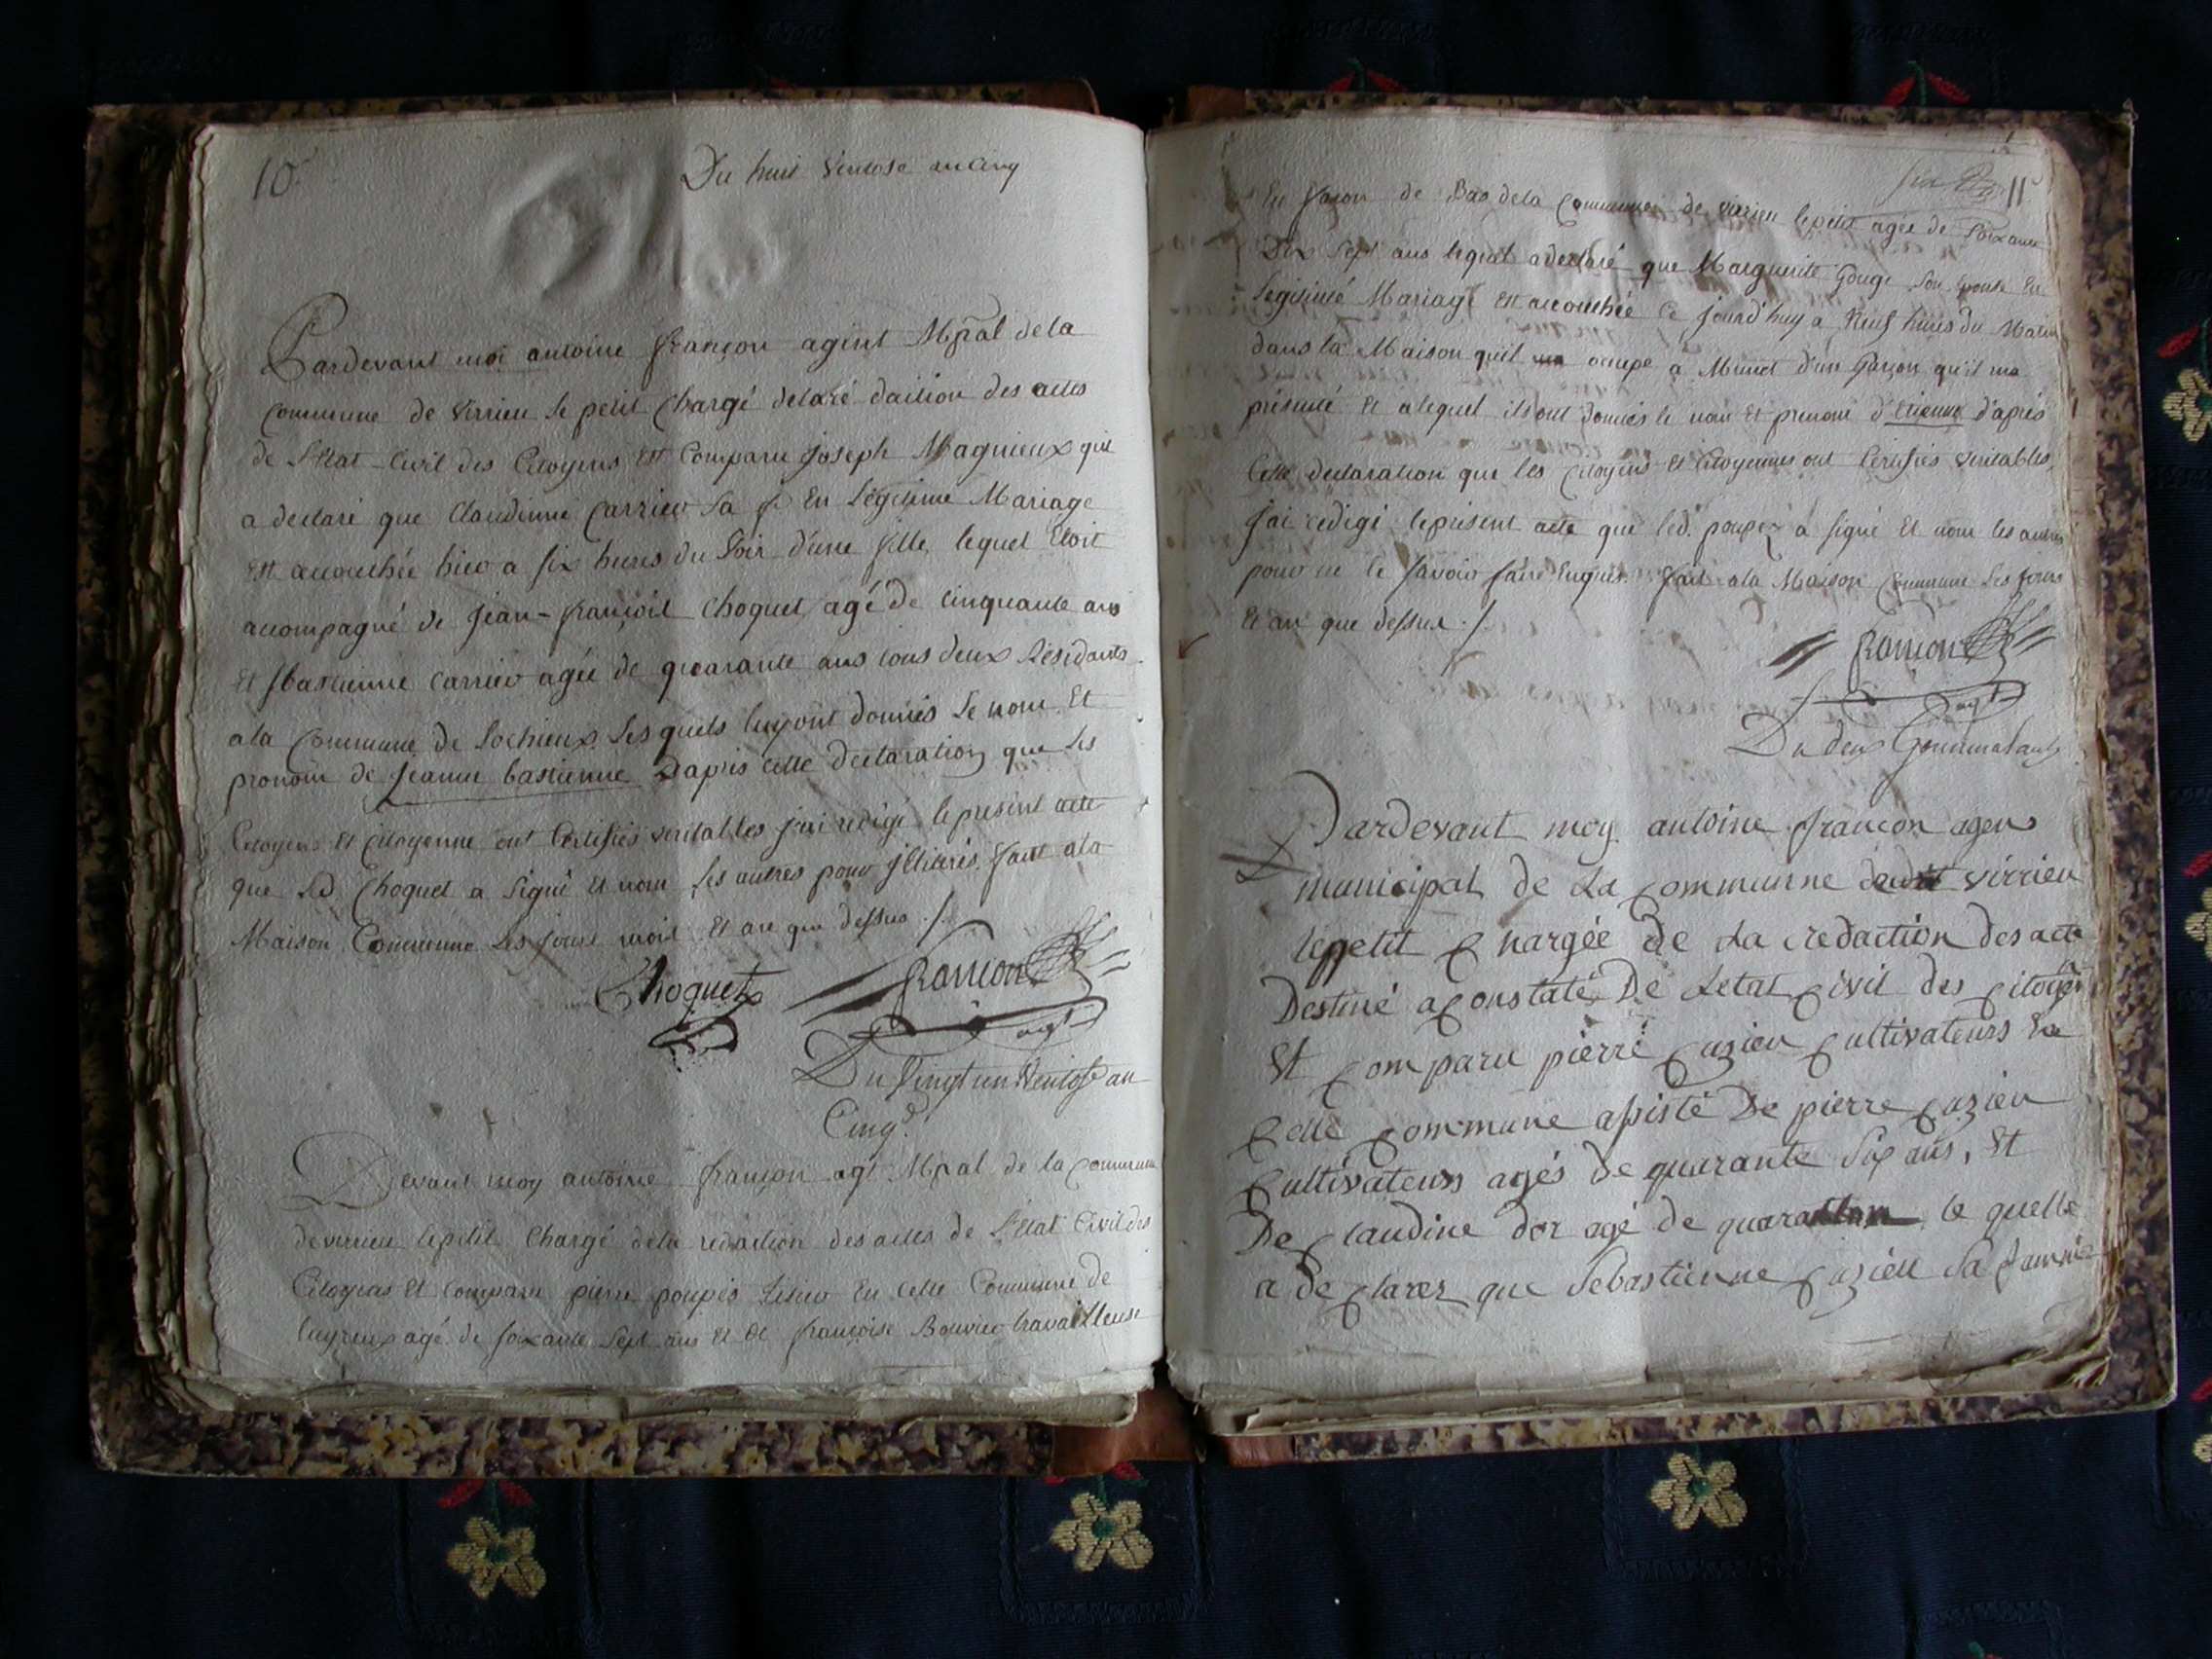 10
Du huit Ventose an Cinq
Pardevant moi antoine françon agent Mpal de la
Commune de Virrieu le petit chargé delaré daition des actes
de l'Etat-Civil des Citoyens Est Comparu joseph Magnieux qui
a declaré que Claudinne Carrier sa f. En Légitime Mariage
Est accouchée hier a six heures du Soir d'une fille, lequel Etoit
accompagné de jean-françois Choquet agé de cinquante ans
et sbastienne Carrier agée de quarante ans tous deux Résidants
a la Commune de Lochieux, Les quels luy ont donnés Le nom Et
pronom de jeanne bastienne D'apris cette declaration que Les
Citoyens Et Citoyenne ont Certifiés veritables j'ai redigé le present acte
que Led. Choquet a Signé Et nom Les autres pour jllitérés. fait a la
Maison Commune Les jours mois Et an que dessus ./.
Choquet françon
agt
Du Vingt un Ventose an
Cinq
Devant moy antoine françon agt Mpal de la Commune
de virrieu lepetit Chargé dela redaction des actes de L'Etat Civil des
Citoyens Est Comparu pierre poupés En cette Commune de
luyrieux agé de soixante Sept ans et de françoise Bouvier travailleuse
11
En jaçon de Bas dela Commune de virrieu lepetit agée de Soixante
Dix Sept ans lequel a declaré que Marguerite Gouge Son Epouse En
Legitimé Mariage Est accouchée Ce jourd'huy a Neuf heures du Matin
dans la Maison qu'il occupe a Munet d'un Garçon qu'il ma
présenté Et alequel ils ont donnés le nom Et prenom d'Etienne d'après
Cette declaration que les Citoyens Et Citoyennes ont Certifiés veritables,
j'ai redigé le présent acte que led. poupez a signé Et nom les autres
pour ne le savoir faire Enquis. fait a la Maison Commune Les jours
Et an que dessus ./.
françon
agt
Du deux Germinal
Pardevant moy antoine francon agens
municipal de La Communne dudit virrieu
lepetit Chargée de La redaction des acte
Destiné a Constaté De Letat Civil des Citoyen
Et Comparu pierre Cuzieu Cultivateurs En
Cette Commune assisté De pierre Cuzieu
Cultivateurs agés De quarante Six ans, Et
De Claudine dor agé de le quelle
a de Clarez que Sebastienne Cuzieu Sa famme